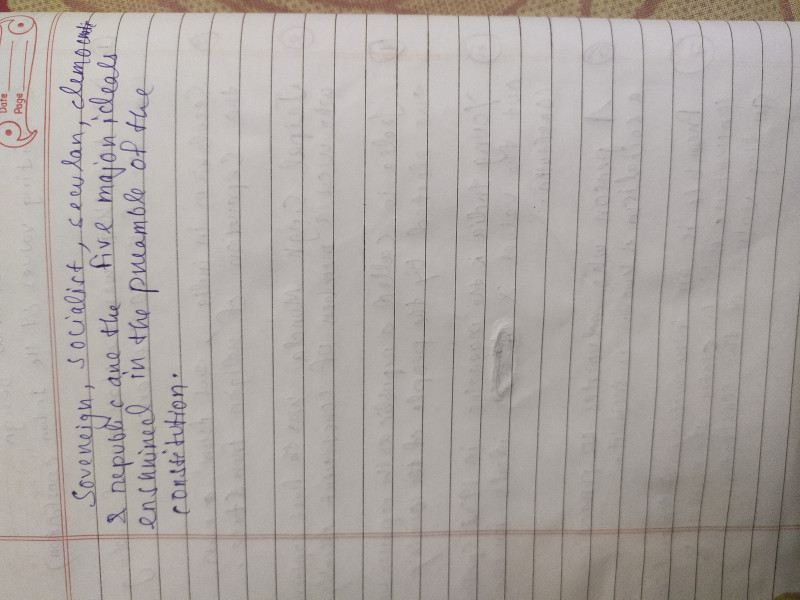 Date
Page
Sovereign, socialist, secular, democratic
& republic are the five major ideals
enshrined in the preamble of the
constitution.